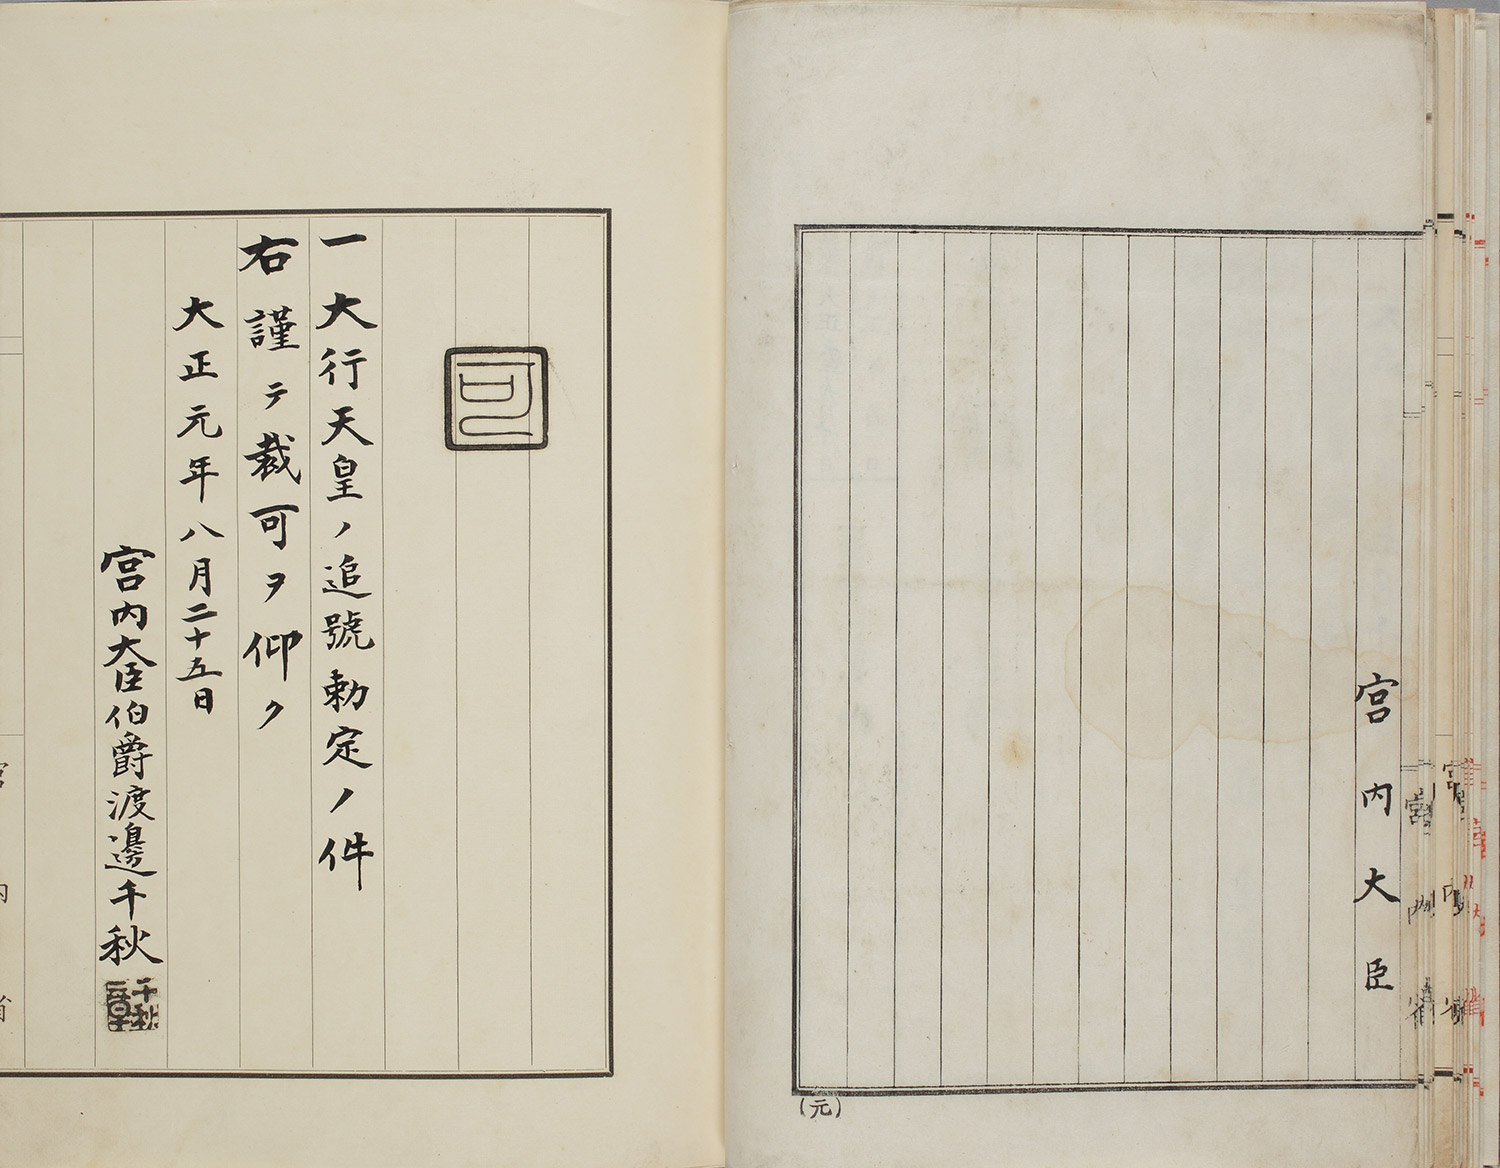 宮内大臣
(元)
可
一大行天皇ノ追號勅定ノ件
右謹テ裁可ヲ仰ク
大正元年八月二十五日
宮内大臣伯爵渡邉千秋
千秋
章